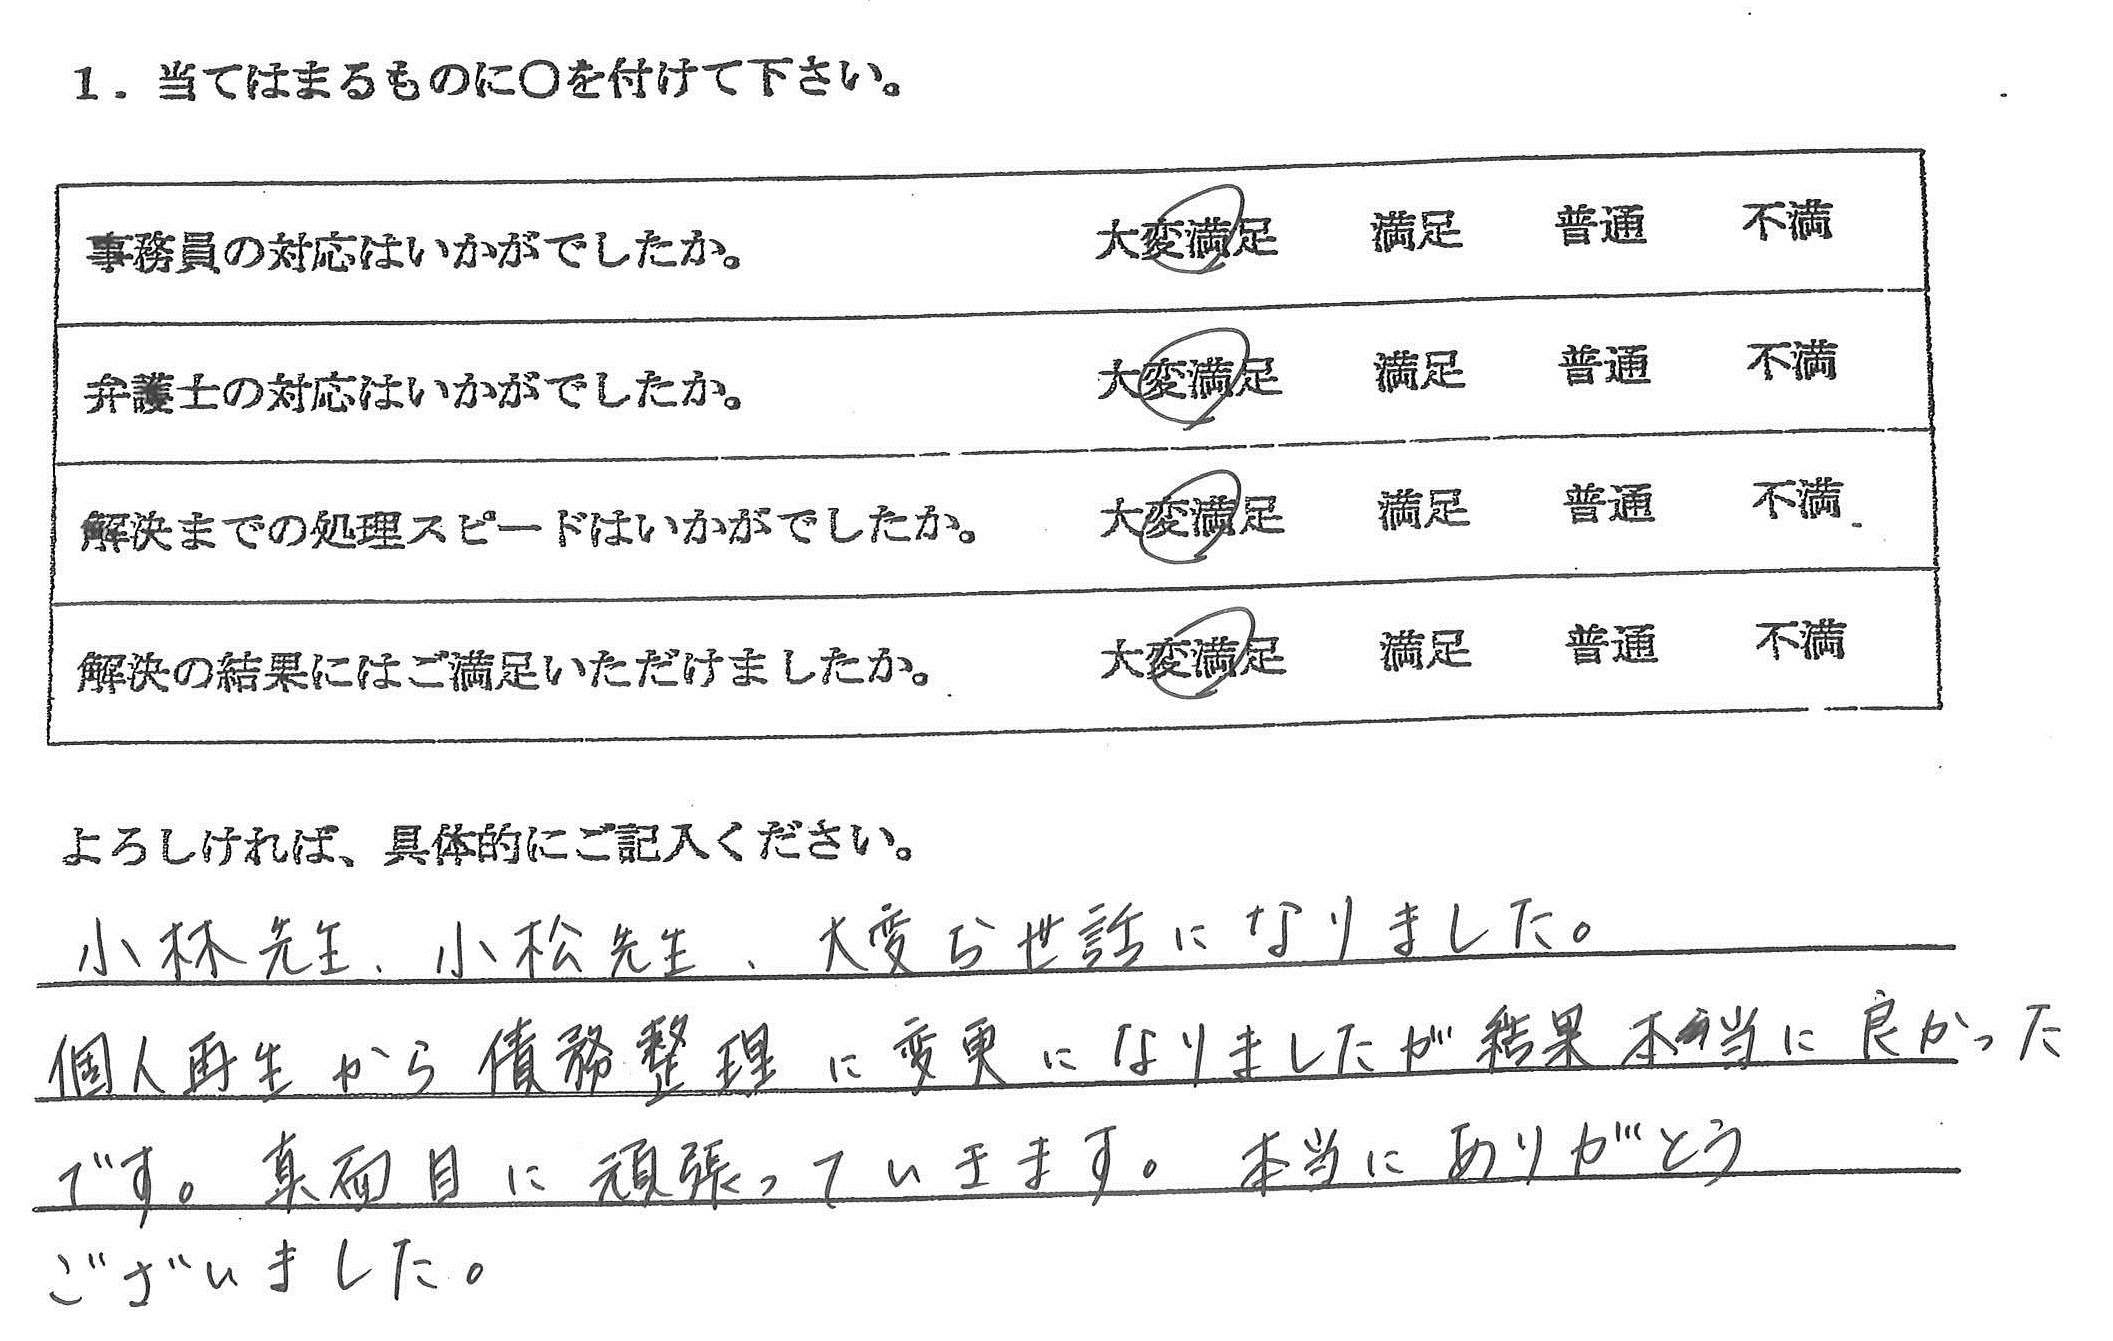 1. 当てはまるものに○を付けて下さい。
事務員の対応はいかがでしたか。 大変満足 満足 普通 不満
弁護士の対応はいかがでしたか。 大変満足 満足 普通 不満
解決までの処理スピードはいかがでしたか。 大変満足 満足 普通 不満
解決の結果にはご満足いただけましたか。 大変満足 満足 普通 不満
よろしければ、具体的にご記入ください。
小林先生、小松先生、大変お世話になりました。
個人再生から債務整理に変更になりましたが結果本当に良かった
です。真面目に頑張っていきます。本当にありがとう
ございました。